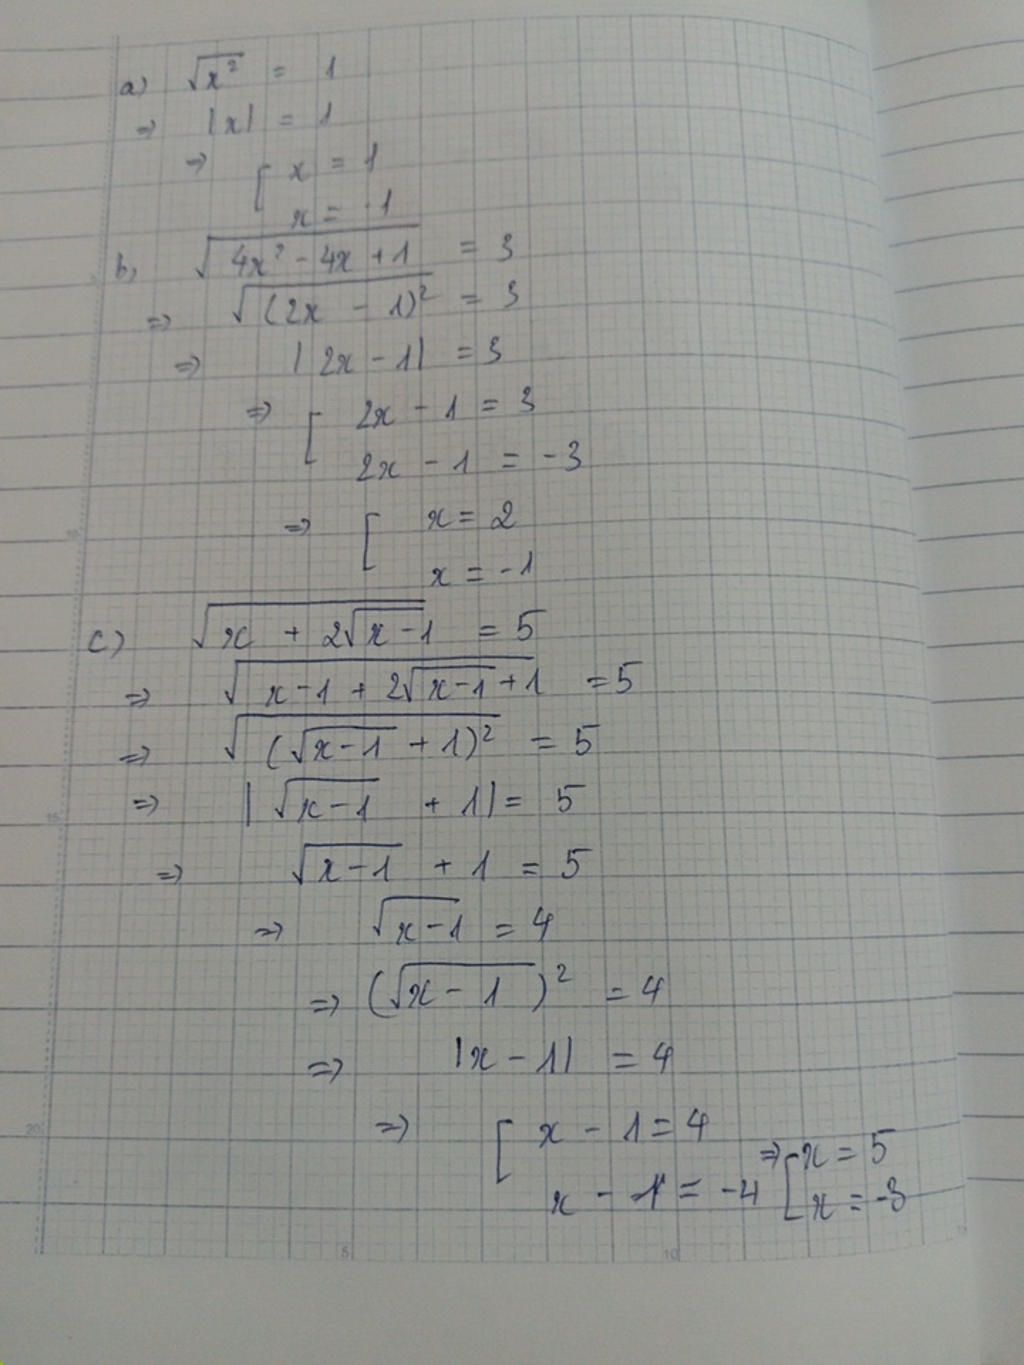 a) √x² = 1
⇒ |x| = 1
⇒ [ x = 1
x = -1
b, √4x² - 4x + 1 = 3
⇒ √(2x - 1)² = 3
⇒ |2x - 1| = 3
⇒ [ 2x - 1 = 3
2x - 1 = -3
⇒ [ x = 2
x = -1
c) √x + 2√x-1 = 5
⇒ √x-1 + 2√x-1 + 1 = 5
⇒ √(√x-1 + 1)² = 5
⇒ |√x-1 + 1| = 5
⇒ √x-1 + 1 = 5
⇒ √x-1 = 4
⇒ (√x - 1)² = 4
⇒ |x - 1| = 4
⇒ [ x - 1 = 4
x - 1 = -4 ⇒ [ x = 5
x = -3
15
20
5
10